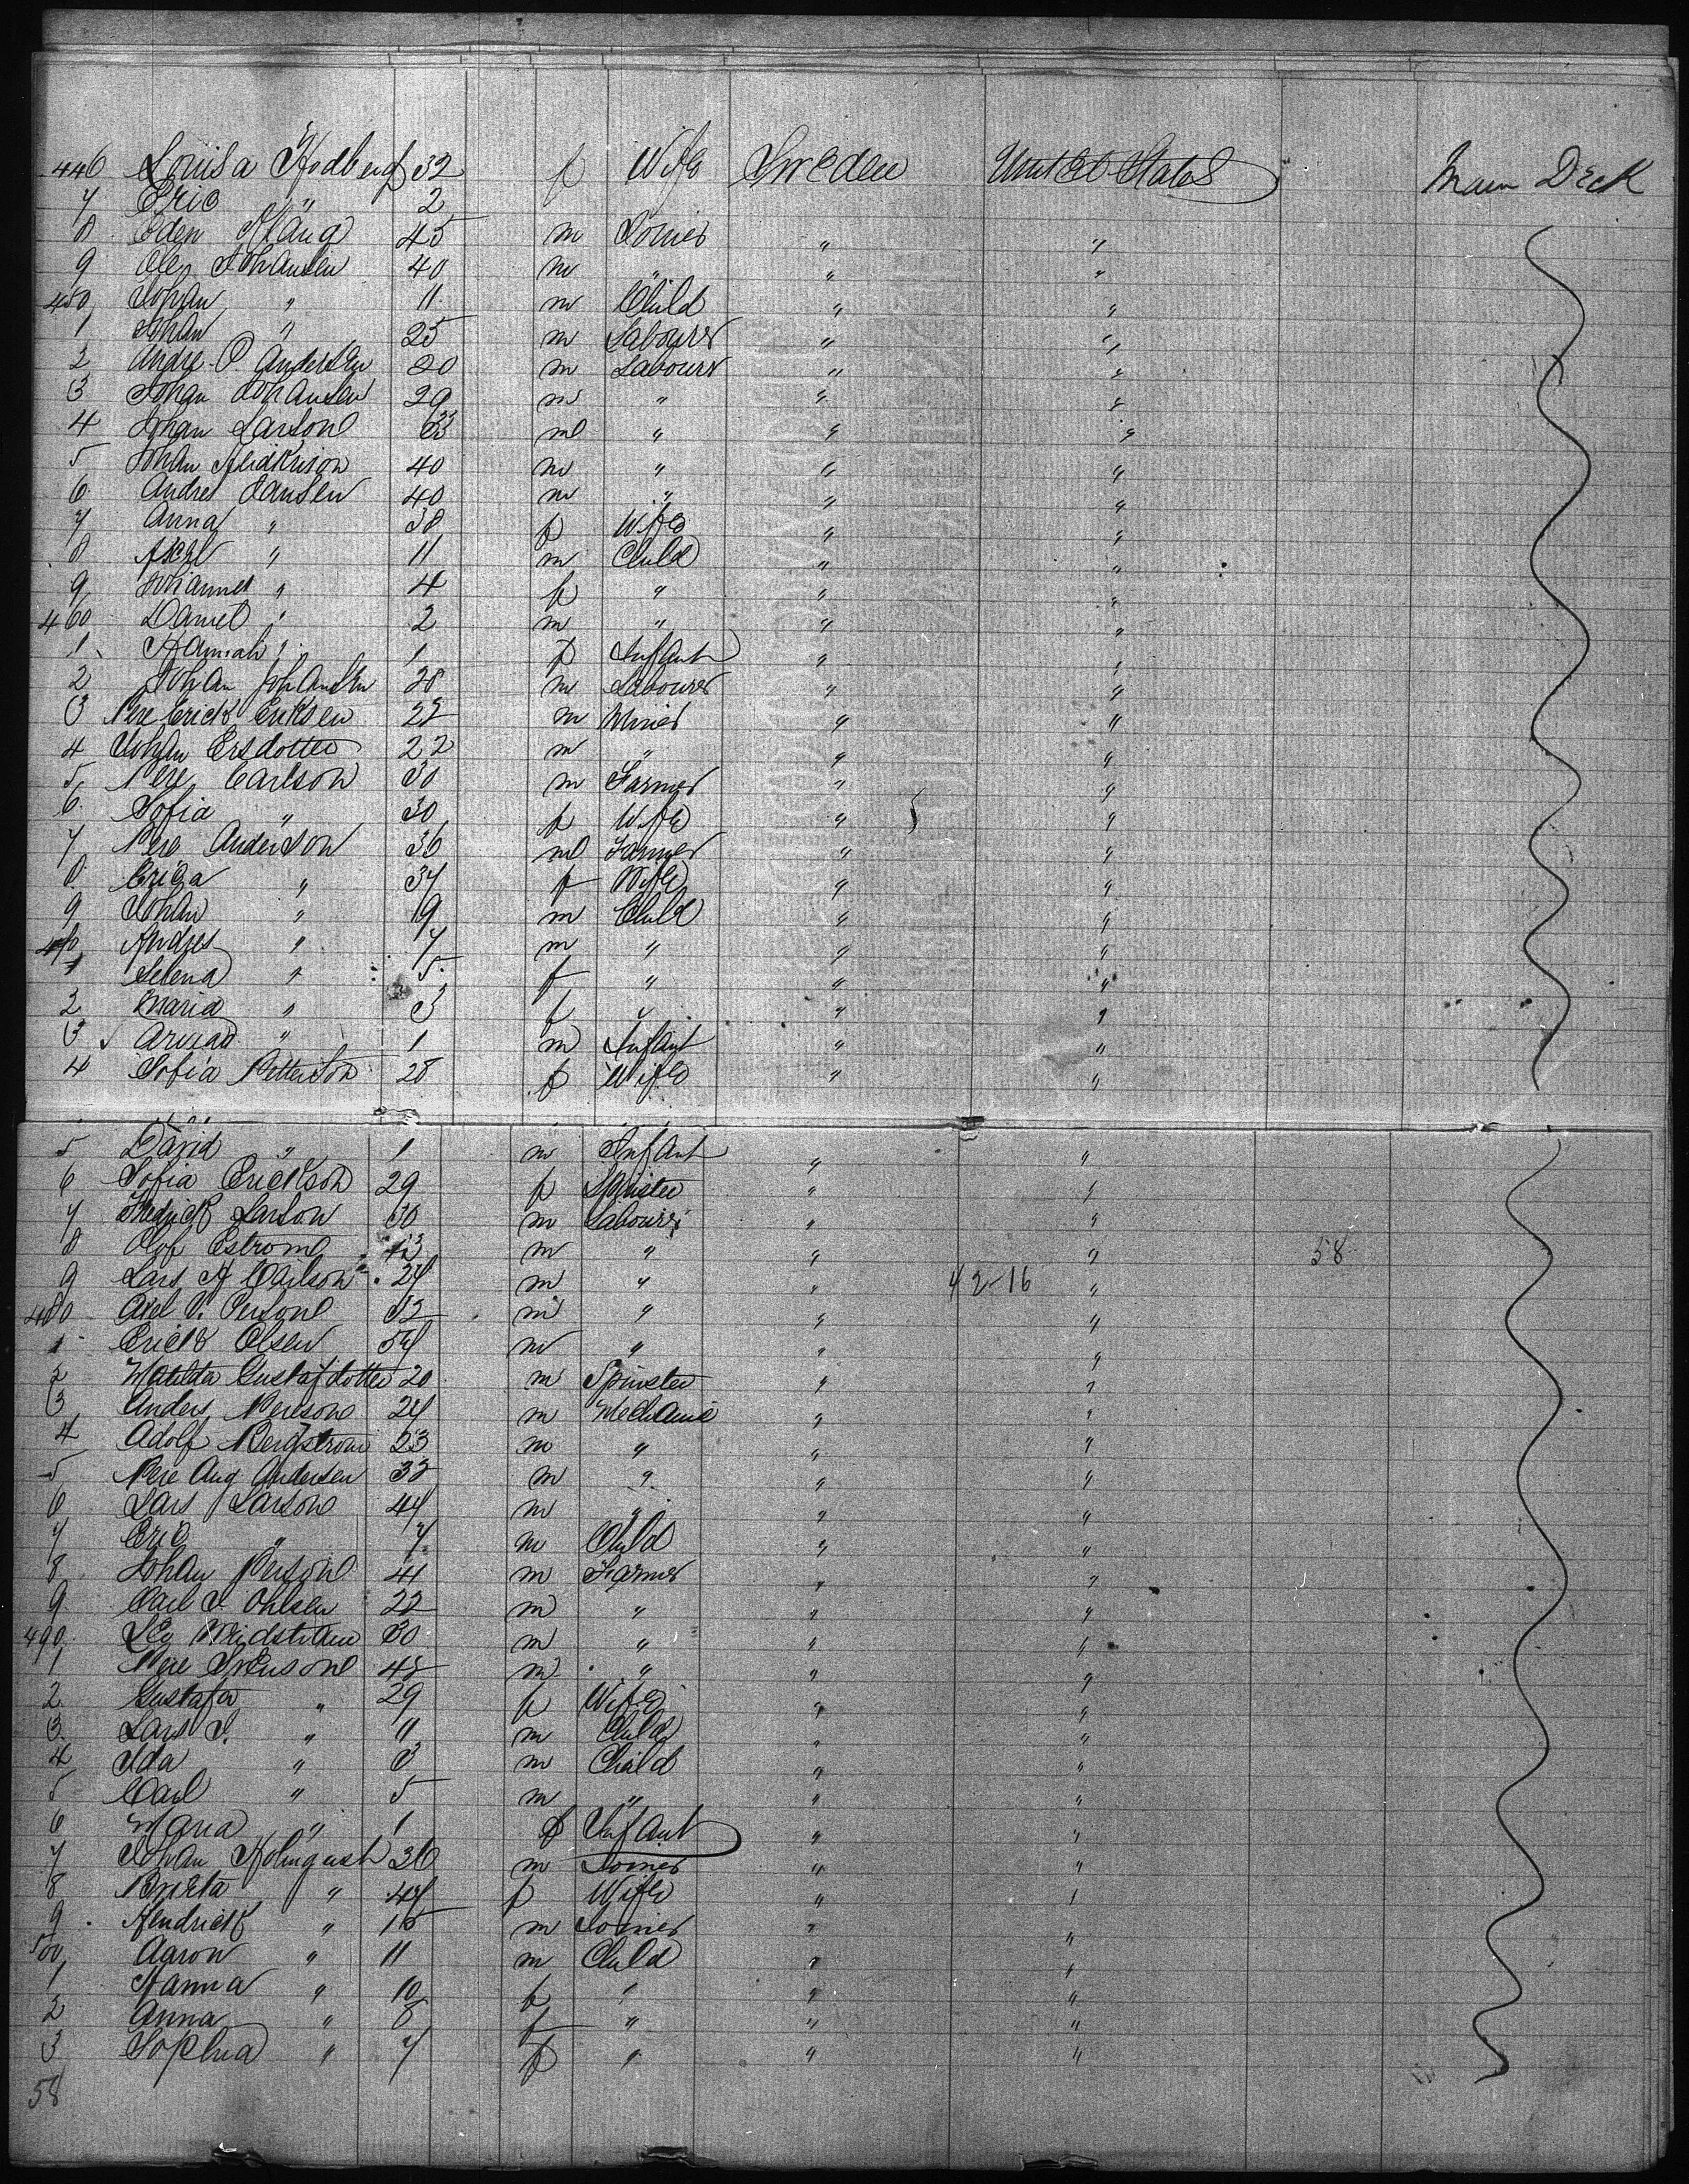 446 Louisa Hodberg 32 f Wife Sweden United States Main Deck
7 Eric " 2
8 Eden Klang 45 m Joiner " "
9 Johansen 40 m " " "
450 Johan " 11 m Child " "
1 Johan " 25 m Labourer " "
2 Andre P Andersen 20 m Labourer " "
3 Johan Johansen 29 m " " "
4 Johan Larsone 33 m " " "
5 Johan 40 m " " "
6 Andres Jansen 40 m " " "
7 Anna " 38 f Wife " "
8 Axel " 11 m Child " "
9 Johannes " 4 f " " "
460 Daniel " 2 m " " "
1 Hannah " 1 f Infant " "
2 Johan Johansen 28 m Labourer " "
3 Pere Erick Eriksen 22 m Miner " "
4 Johan Ersdotter 22 m " " "
5 Pere Carlson 30 m Farmer " "
6 Sofia " 30 f Wife " "
7 Pere Anderson 36 m Farmer " "
8 Eriga " 37 f Wife " "
9 Johan " 9 m Child " "
470 Andres " 7 m " " "
1 Selena " 5 f " " "
2 Maria " 3 f " " "
3 " 1 m Infant " "
4 Sofia Petterson 28 f Wife " "
5 David " 1 m Infant " "
6 Sofia Erickson 29 f Spinster " "
7 Fredrick Larson 30 m Labourer " "
8 Olof Estrome 43 m " " " 58
9 Lars A Carlson 24 m " " 42-16 "
480 Axel V. Persone 32 m " " "
1 Erick Olsen 54 m " " "
2 Matilda Gustafdotter 20 m Spinster " "
3 Anders Peresone 24 m Mechanic " "
4 Adolf Bergstrom 23 m " " "
5 Pere Aug Andersen 32 m " " "
6 Lars Larsone 44 m " " "
7 Eric " 7 m Child " "
8 Johan Persone 41 m Farmer " "
9 Carl J. Ohlsen 22 m " " "
490 30 m " " "
1 Pere Svensone 42 m " " "
2 Gustafva " 29 f Wife " "
3 Lars J. " 11 m Child " "
4 Ida " 3 m Child " "
5 Carl " 5 m " " "
6 Maria " 1 f Infant " "
7 Johan Holmquest 36 m Joiner " "
8 Breta " 44 f Wife " "
9 Hendrick " 15 m Joiner " "
500 Aaron " 11 m Child " "
1 Hanna " 10 f " " "
2 Anna " 8 f " " "
3 Sophia " 7 f " " "
58